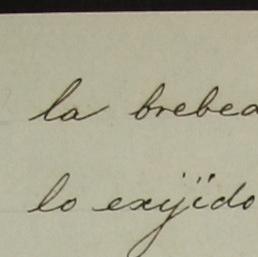 la brebea
lo exijido